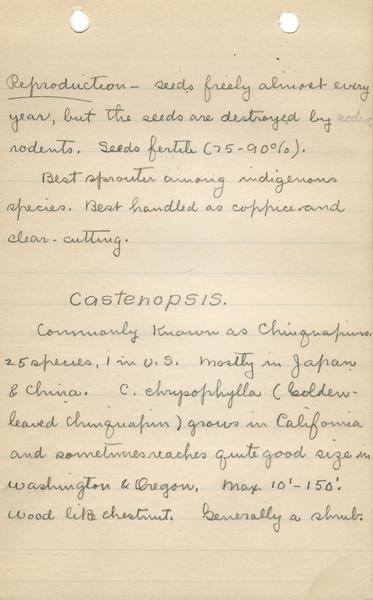 Reproduction - seeds freely almost every
year, but the seeds are destroyed by
rodents. Seeds fertile (75-90%).
Best sprouter among indigenous
species. Best handled as coppice and
clear-cutting.
Castenopsis.
Commonly Known as Chinquapins.
25 species, 1 in U.S. Mostly in Japan
& China. C. chrysophylla (Golden-
leaved Chinquapin) grows in California
and sometimes reaches quite good size in
Washington & Oregon. Max. 10'-150'.
Wood like chestnut. Generally a shrub.